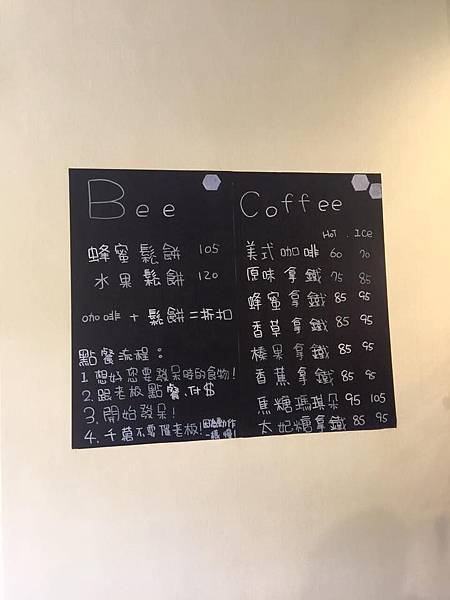 Bee
蜂蜜鬆餅 105
水果鬆餅 120
咖啡 + 鬆餅 = 折扣
點餐流程：
1. 想好您要發呆時的食物!
2. 跟老板點餐.付$
3. 開始發呆!
4. 千萬不要催老板! 因為動作
一樣慢!
Coffee
HoT . ICE
美式咖啡 60 70
原味拿鐵 75 85
蜂蜜拿鐵 85 95
香草拿鐵 85 95
榛果拿鐵 85 95
香蕉拿鐵 85 95
焦糖瑪琪朵 95 105
太妃糖拿鐵 85 95